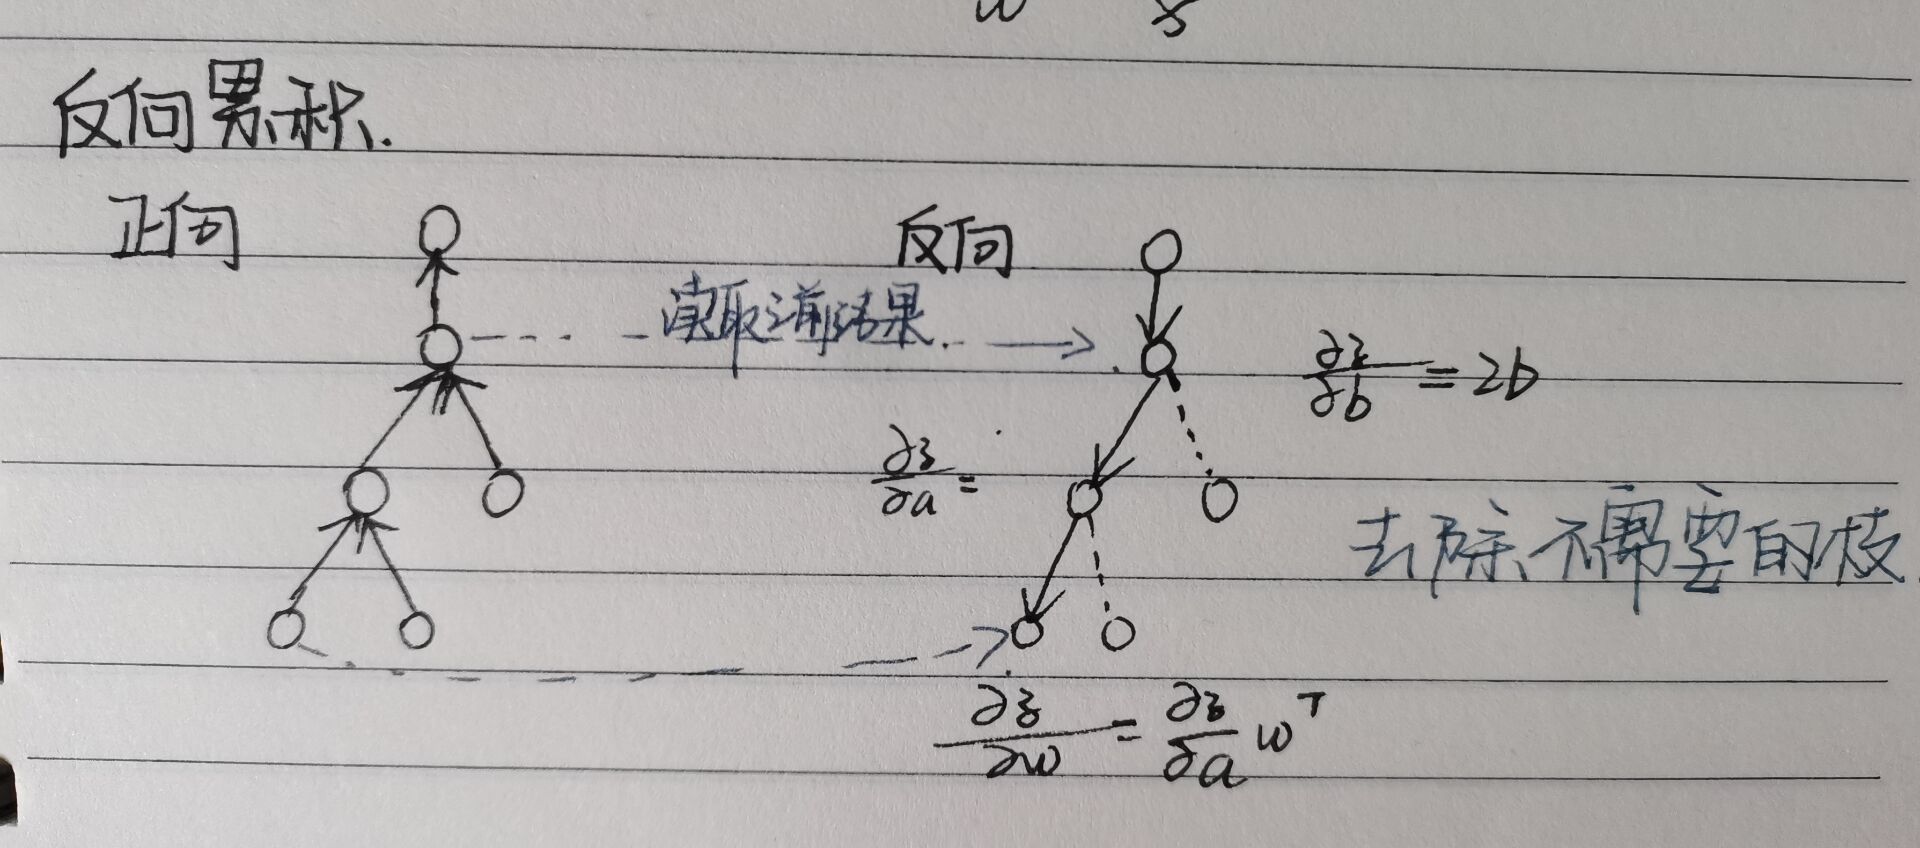 w x
反向累积.
正向
反向
读取之前结果
∂z/∂b = 2b
∂z/∂a =
去除不需要的枝
∂z/∂w = ∂z/∂a w^T